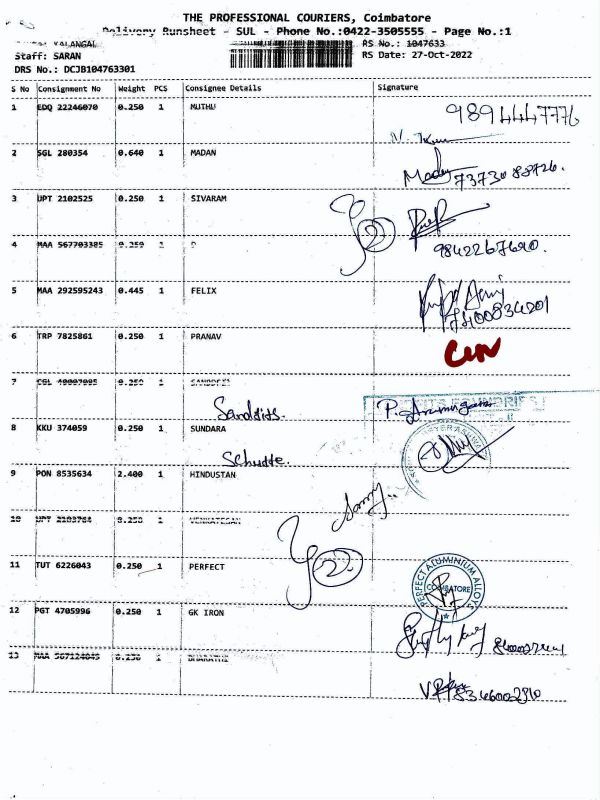 THE PROFESSIONAL COURIERS, Coimbatore
Delivery Runsheet - SUL - Phone No.:0422-3505555 - Page No.:1
RS No.: 1047633
Staff: SARAN
RS Date: 27-Oct-2022
DRS No.: DCJB104763301
S No Consignment No Weight PCS Consignee Details Signature
1 EDQ 22246070 0.250 1 MUTHU
9894447776
2 SGL 280354 0.640 1 MADAN
7373088726.
3 UPT 2102525 0.250 1 SIVARAM
2
4 MAA 567703385 0.250 1
9842267690.
5 MAA 292595243 0.445 1 FELIX
6 TRP 7825861 0.250 1 PRANAV
7 0.250 1
8 KKU 374059 0.250 1 SUNDARA
9 PON 8535634 2.400 1 HINDUSTAN
10 0.250 1 VENKATESAN
2
11 TUT 6226043 0.250 1 PERFECT
PERFECT ALUMINIUM ALLOYS
COIMBATORE
12 PGT 4705996 0.250 1 GK IRON
13 1
8346002910